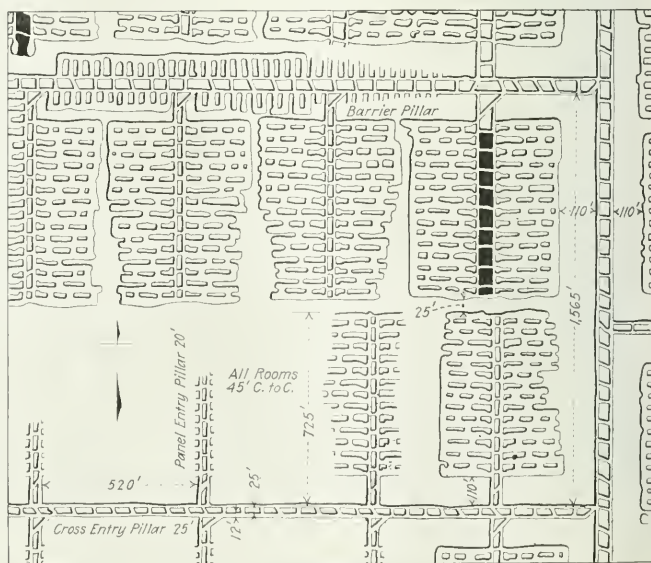 Barrier Pillar
110'
110'
25'
1,565'
Panel Entry Pillar 20'
All Rooms
45' C. to C.
725'
520'
25'
110'
12'
Cross Entry Pillar 25'